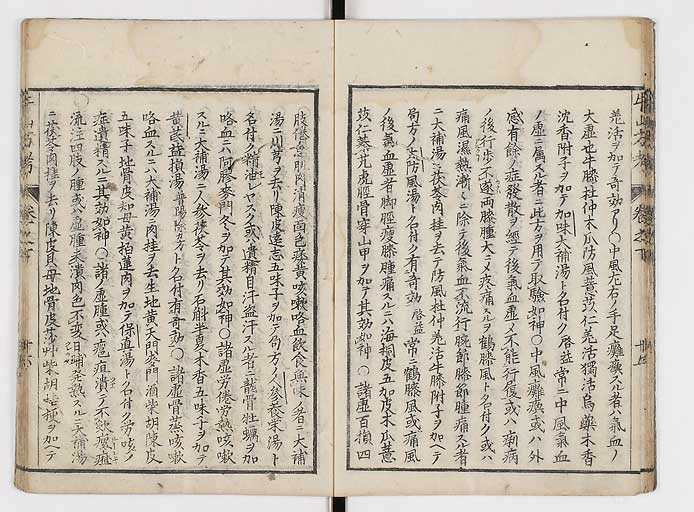 羌活ヲ加テ奇効アリ〇中風左右ノ手足癱瘓スル者ハ氣血ノ
大虚也牛膝杜仲木瓜防風薏苡仁羌活獨活烏藥木香
沈香附子ヲ加テ加味大補湯ト名付ク啓益常ニ中風氣血
ノ虚ニ属スル者ニ此方ヲ用テ取驗如神〇中風癱瘓或ハ外
感有餘ノ症發散ヲ經テ後氣血虚メ不能行履或ハ痢病
ノ後行歩不遂両膝腫大ニメ疼痛スルヲ鶴膝風ト名付ク或ハ
痛風濕熱漸々ニ除テ後氣血不流行腕節膝節腫痛スル者
ニ大補湯ニ茯苓肉桂ヲ去テ防風杜仲羌活牛膝附子ヲ加ヘテ
局方ノ大防風湯ト名付ク有奇効啓益常ニ鶴膝風或痛風
ノ後氣血虚者脚脛瘦膝腫痛スルニハ海桐皮五加皮木瓜薏
苡仁蒼朮虎脛骨穿山甲ヲ加テ其効如神〇諸虚百損四
肢倦怠肌肉消瘦面色痿黄咳嗽咯血飲食無味者ニ大補
湯ニ川芎ヲ去リ陳皮遠志五味子ヲ加テ局方ノ人参養榮湯ト
名付ク精油レロスク或ハ遺精自汗盗汗スル者ニ龍骨牡蠣ヲ加
咯血ニハ阿膠麥門冬ヲ加テ其効如神〇諸虚労倦労熱咳嗽
スルニ大補湯ニ人参茯苓ヲ去リ石斛半夏木香五味子ヲ加テ
黄芪益損湯ト名付有奇効〇諸虚骨蒸咳嗽
咯血スルニハ大補湯ニ肉桂ヲ去生地黄天門麥門酒柴胡陳皮
五味子地骨皮知母黄栢蓮肉ヲ加テ保真湯ト名付ク労咳ノ
症遺精スルニ其効如神〇諸ノ虚腫或ハ瘡疽潰テ不歛瘰癧
流注四肢ノ腫或ハ虚腫未潰肉色不変日晡発熱スルニ大補湯
ニ茯苓肉桂ヲ去リ陳皮貝母地骨皮沙参柴胡桔梗ヲ加ヘテ